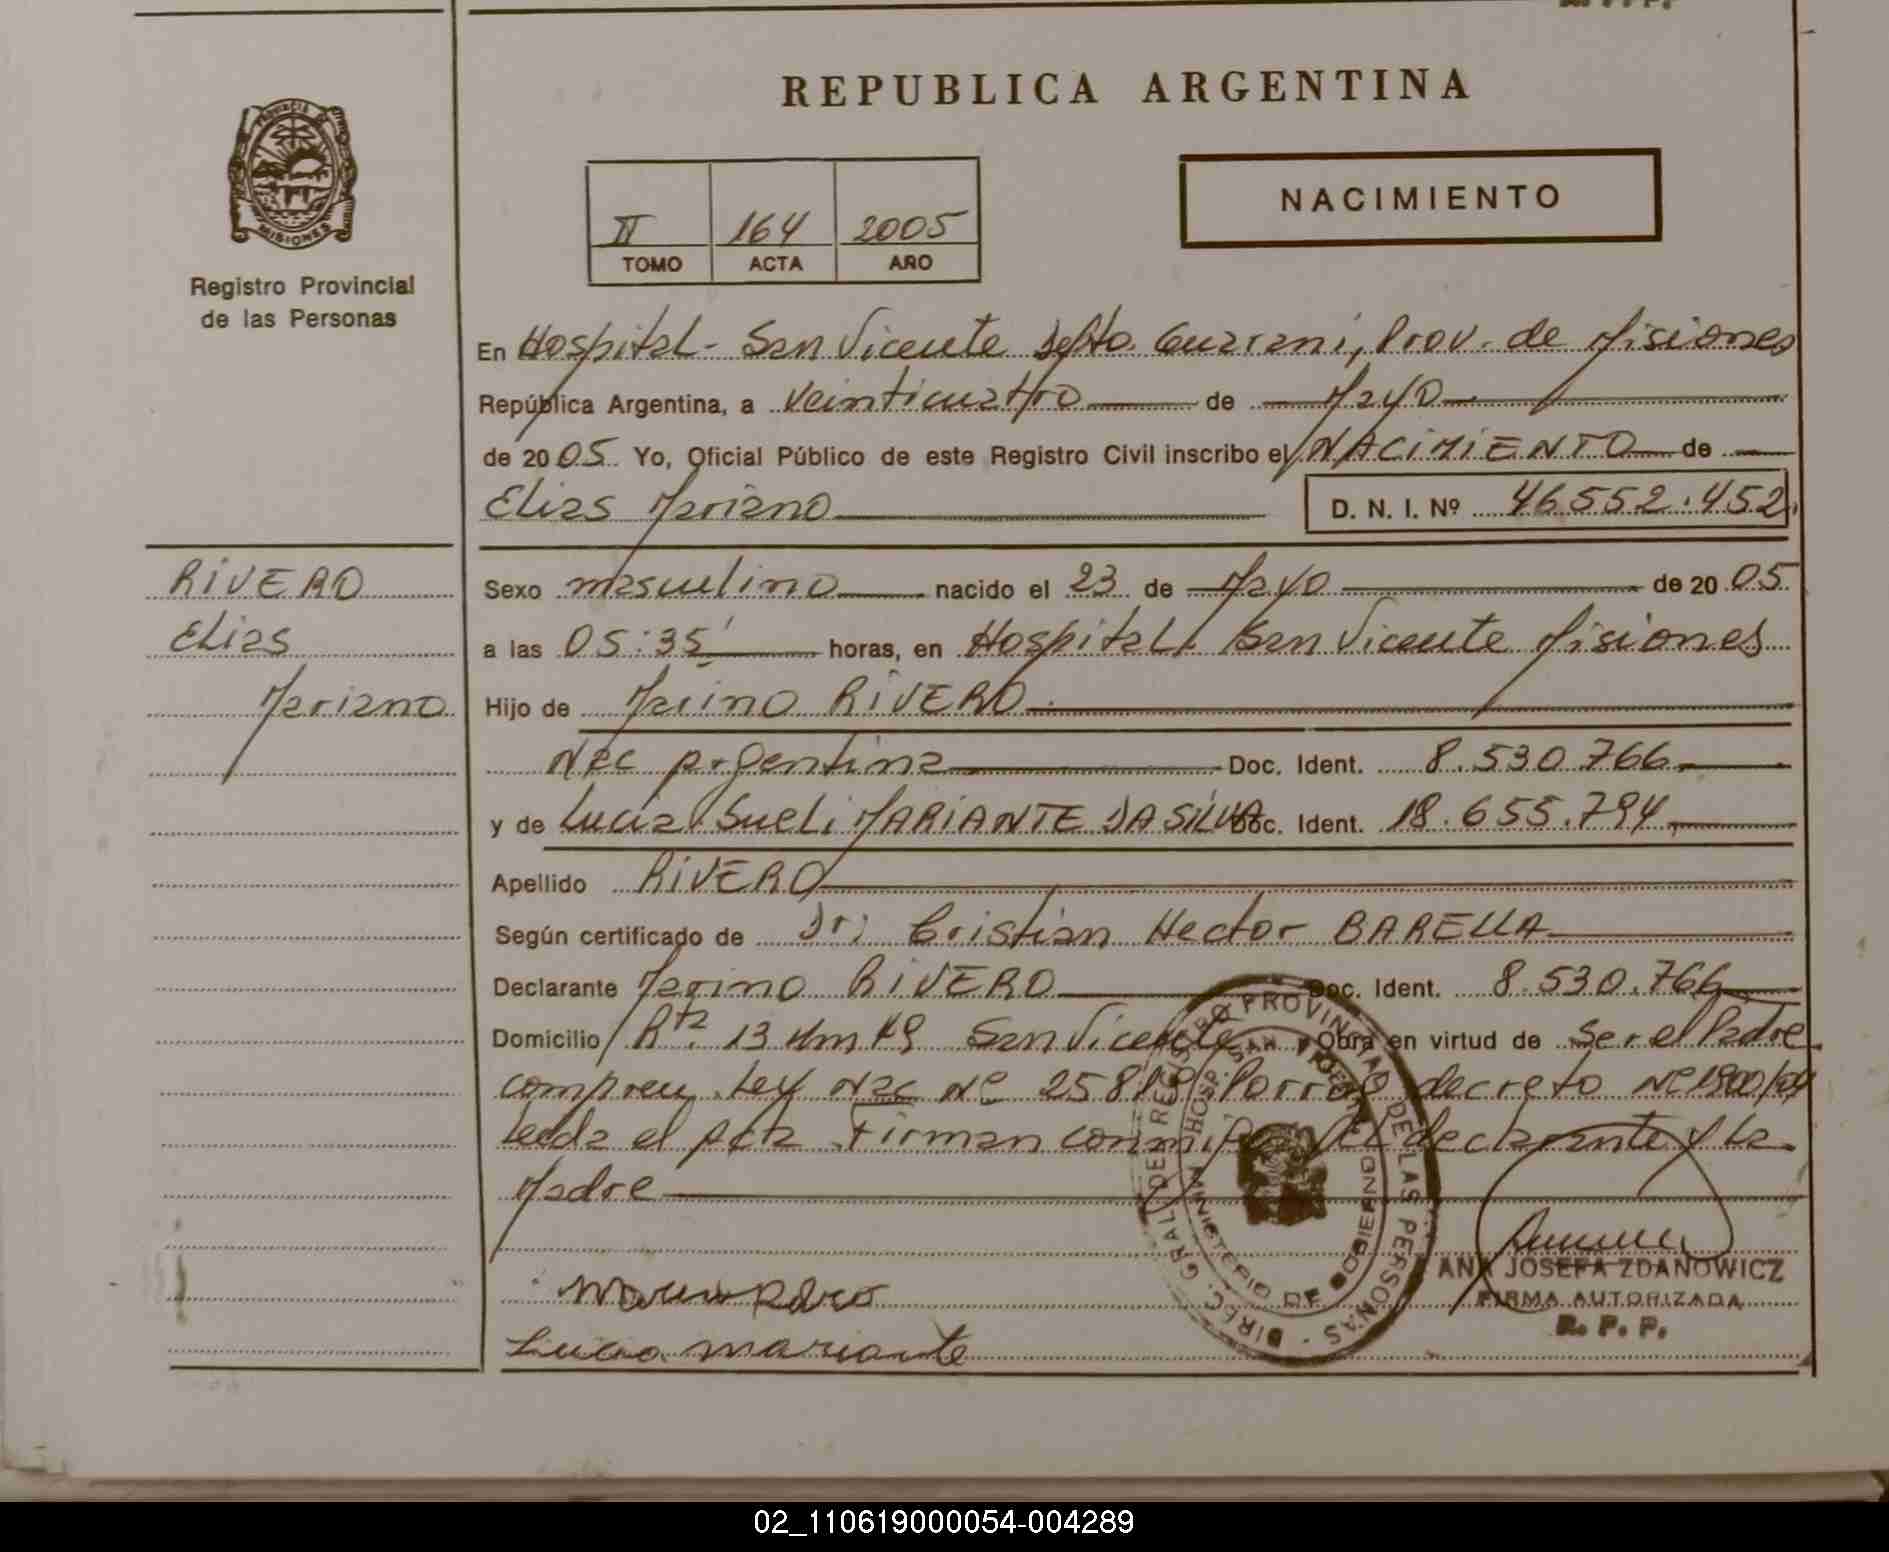 R. P. P.
REPUBLICA ARGENTINA
PROVINCIA DE
MISIONES
Registro Provincial
de las Personas
NACIMIENTO
II 164 2005
TOMO ACTA AÑO
En Hospital - San Vicente Depto. Guarani, Prov. de Misiones
República Argentina, a veinticuatro de Mayo
de 2005 Yo, Oficial Público de este Registro Civil inscribo el NACIMIENTO de
Elias Mariano D. N. I. Nº 46.552.452.
RIVERO
Elias
Mariano
Sexo masculino nacido el 23 de Mayo de 2005
a las 05:35' horas, en Hospital San Vicente Misiones
Hijo de Marino RIVERO
Nac Argentina Doc. Ident. 8.530.766
y de Lucia Sueli MARIANTE DA SILVA Doc. Ident. 18.655.794
Apellido RIVERO
Según certificado de Dr; Cristian Hector BARELLA
Declarante Marino RIVERO Doc. Ident. 8.530.766
Domicilio Rta. 13 Km San Vicente Obra en virtud de ser el Padre
Ley Nac Nº decreto Nº 1900/04
Leida el Acta Firman conmigo el declarante y la
Madre
Marino Rivero
Lucia mariante
DIREC. GRAL. DE REGISTRO PROVINCIAL DE LAS PERSONAS
HOSP. SAN VICENTE
MINISTERIO DE GOBIERNO
ANA JOSEFA ZDANOWICZ
FIRMA AUTORIZADA
R. P. P.
02_110619000054-004289